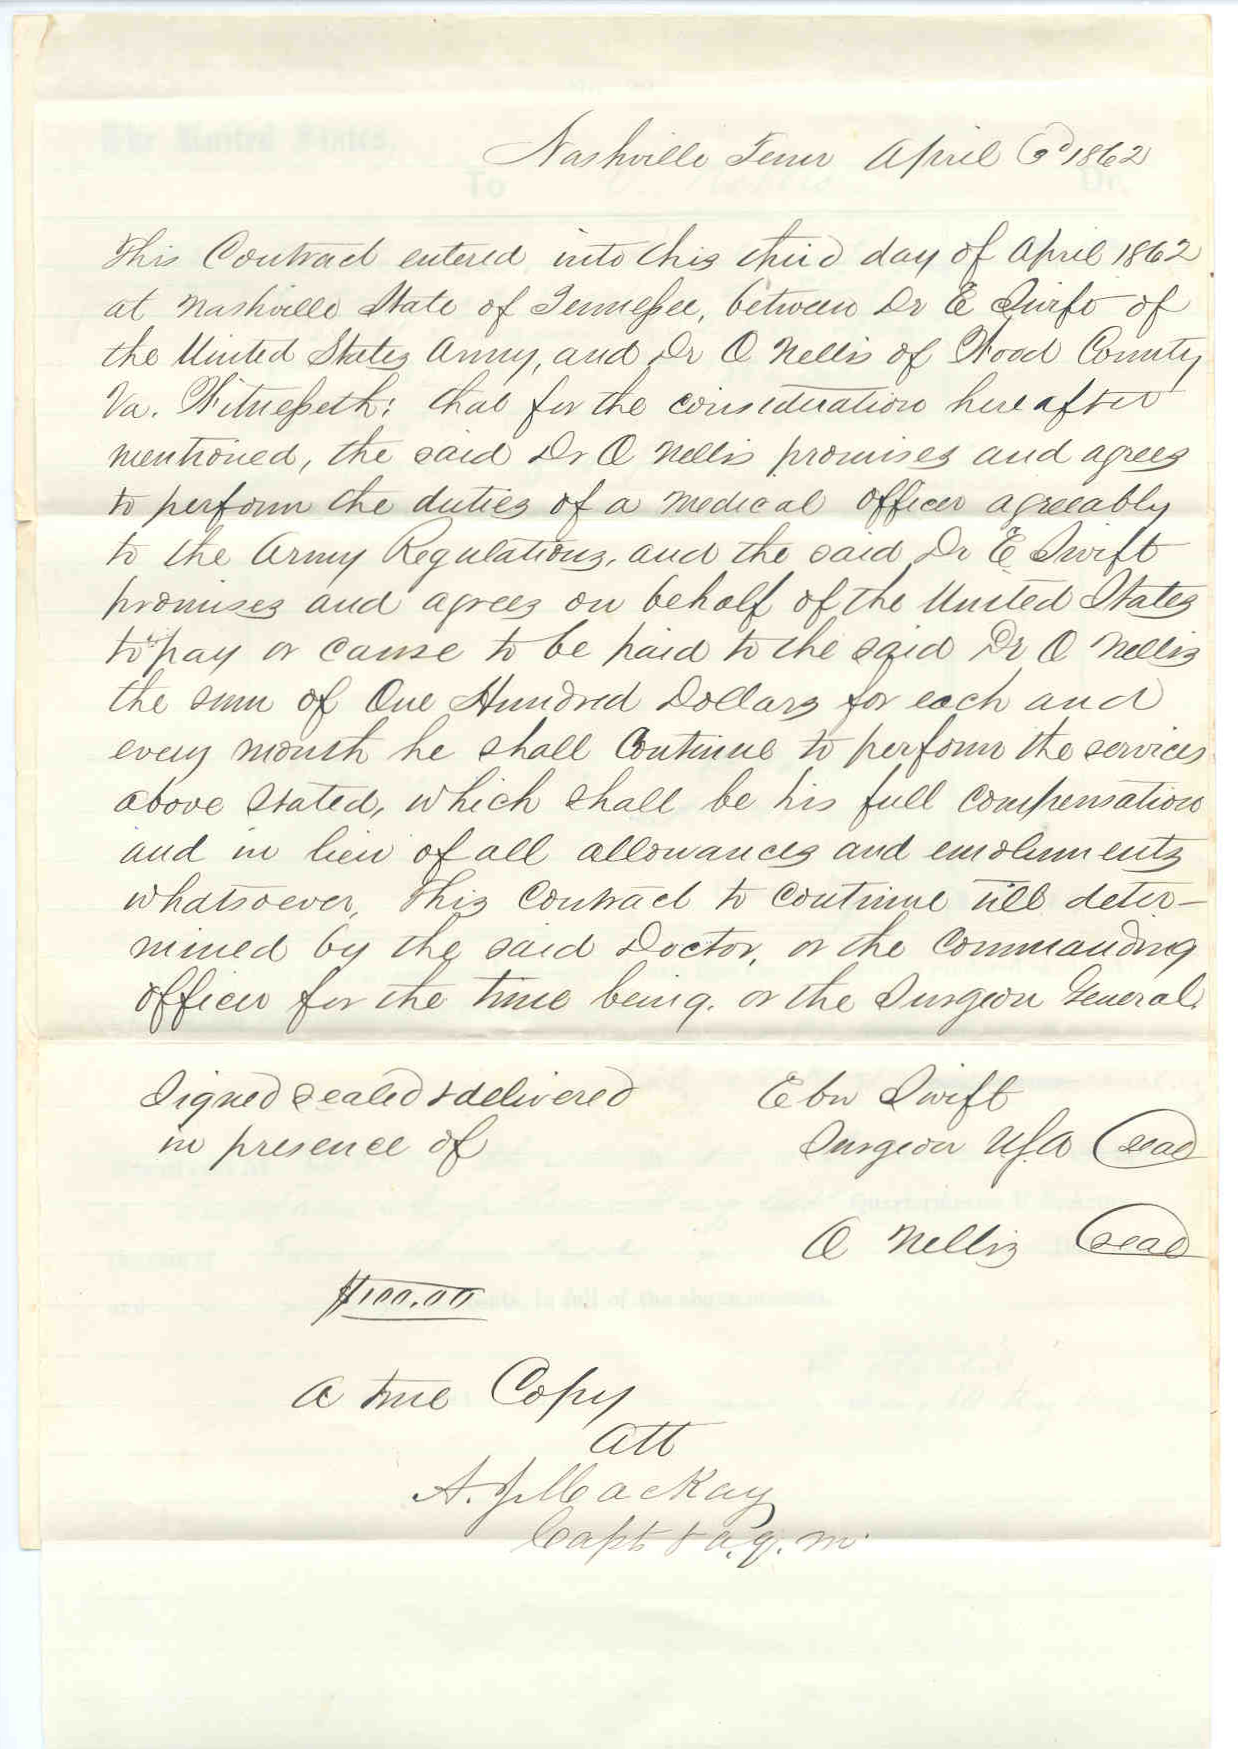 Nashville Tenn April 3d 1862
This Contract entered into this third day of April 1862
at Nashville State of Tennessee, between Dr E Swift of
the United States Army, and Dr O Nellis of Wood County
Va. Witnesseth: that for the consideration here after
mentioned, the said Dr O Nellis promises and agrees
to perform the duties of a Medical Officer agreeably
to the Army Regulations, and the said Dr E Swift
promises and agrees on behalf of the United States
to pay or cause to be paid to the said Dr O Nellis
the sum of One Hundred Dollars for each and
every month he shall Continue to perform the services
above stated, which shall be his full compensation
and in lieu of all allowances and emoluments
whatsoever, This Contract to continue till deter-
mined by the said Doctor, or the Commanding
officer for the time being. or the Surgeon General.
Signed sealed & delivered
in presence of
Ebn Swift
Surgeon USA Seal
O Nellis Seal
$100.00
A true Copy
Att
A. J. MacKay
Capt & a. q. m.
The United States,
To Dr.
cents, in full of the above account.